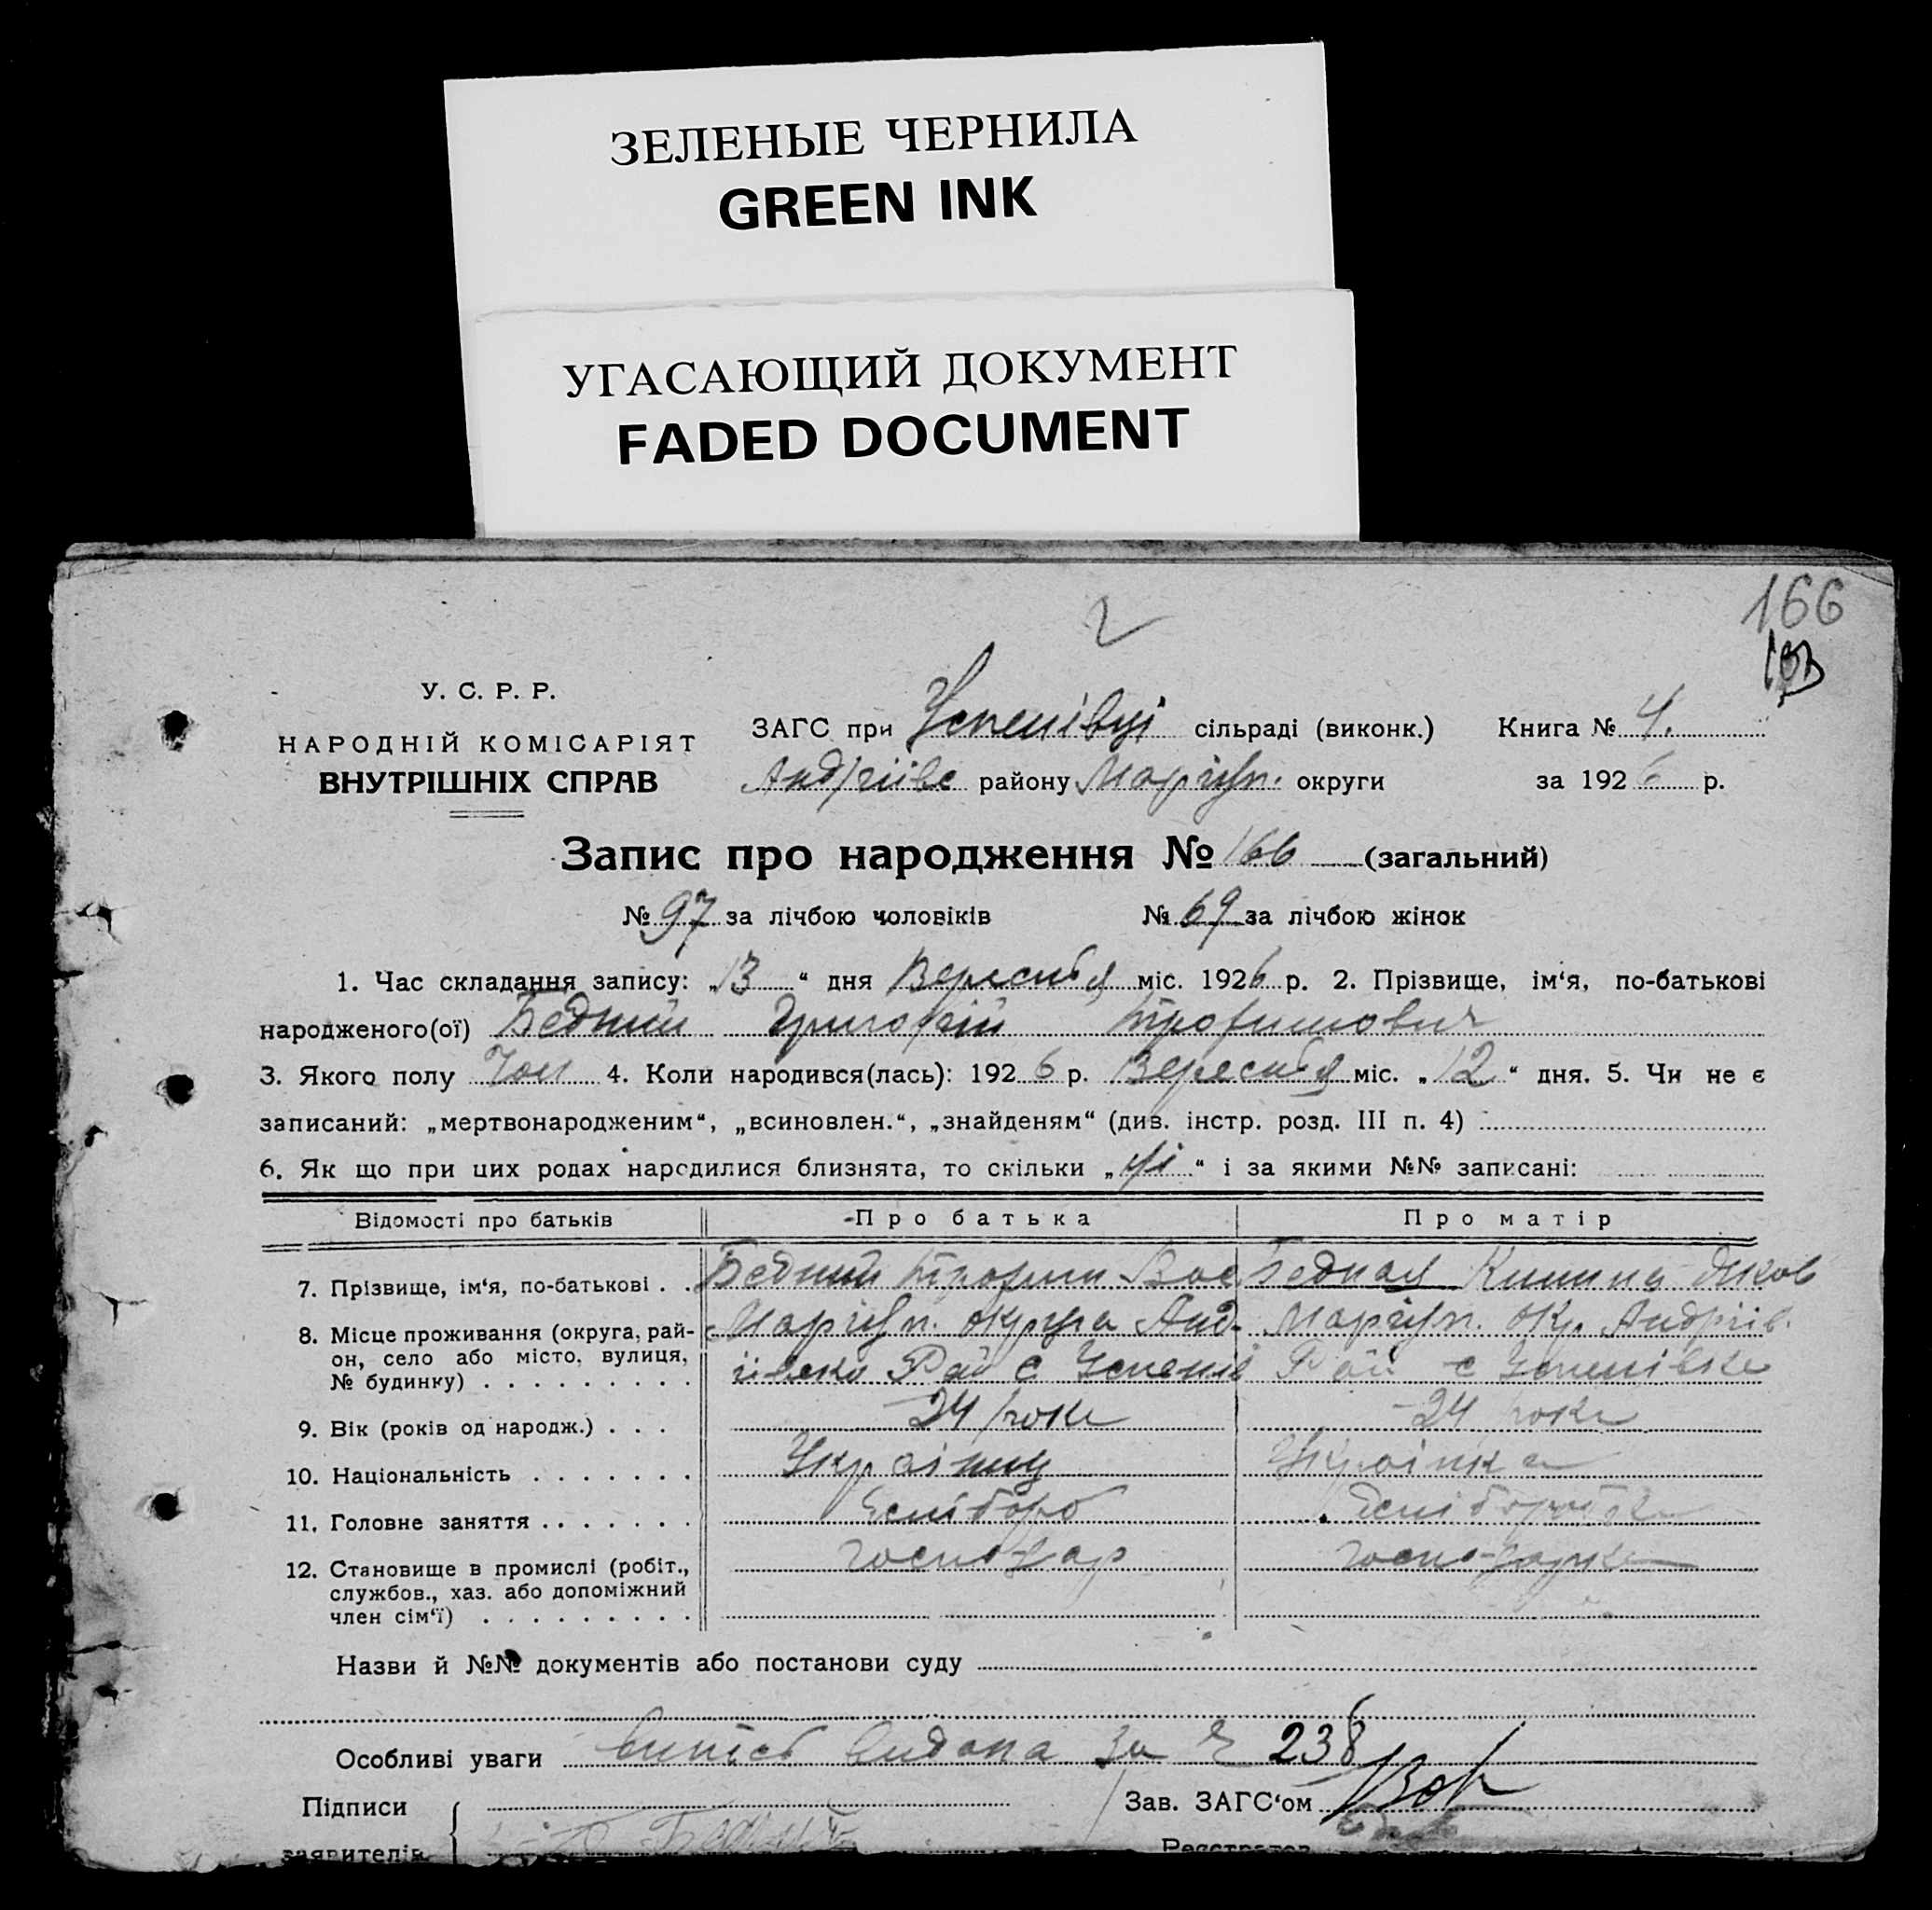 ЗЕЛЕНЫЕ ЧЕРНИЛА
GREEN INK
УГАСАЮЩИЙ ДОКУМЕНТ
FADED DOCUMENT
166
У. С. Р. Р.
НАРОДНІЙ КОМІСАРІЯТ
ВНУТРІШНІХ СПРАВ
ЗАГС при Успенівці сільраді (виконк.) Книга № 4.
Андріївс району Маріуп. округи за 1926 р.
Запис про народження № 166 (загальний)
№ 97 за лічбою чоловіків № 69 за лічбою жінок
1. Час складання запису: „13“ дня Вересня міс. 1926 р. 2. Прізвище, ім‘я, по-батькові
народженого(ої) Бедний Григорій Трофимович
3. Якого полу Чол 4. Коли народився(лась): 1926 р. Вересня міс. „12“ дня. 5. Чи не є
записаний: „мертвонародженим“, „всиновлен.“, „знайденям“ (див. інстр. розд. III п. 4)
6. Як що при цих родах народилися близнята, то скільки „ні“ і за якими №№ записані:
Відомості про батьків Про батька Про матір
7. Прізвище, ім‘я, по-батькові . . Бедний Трофим Вас Бедная Яков
8. Місце проживання (округа, рай-
он, село або місто, вулиця,
№ будинку) . . . . . . . . . Маріуп. округа Анд- Маріуп. окр. Андріів.
Рай с Успенів Рай с Успенівке
9. Вік (років од народж.) . . . 24 роки 24 роки
10. Національність . . . . . . . Українец Українка
11. Головне заняття . . . . . . .
12. Становище в промислі (робіт.,
службов., хаз. або допоміжний
член сім‘ї) . . . . . . . . . господар господарка
Назви й №№ документів або постанови суду
Особливі уваги випись видана за № 238
Підписи
заявителів Бедний
Зав. ЗАГС‘ом
Реєстратор